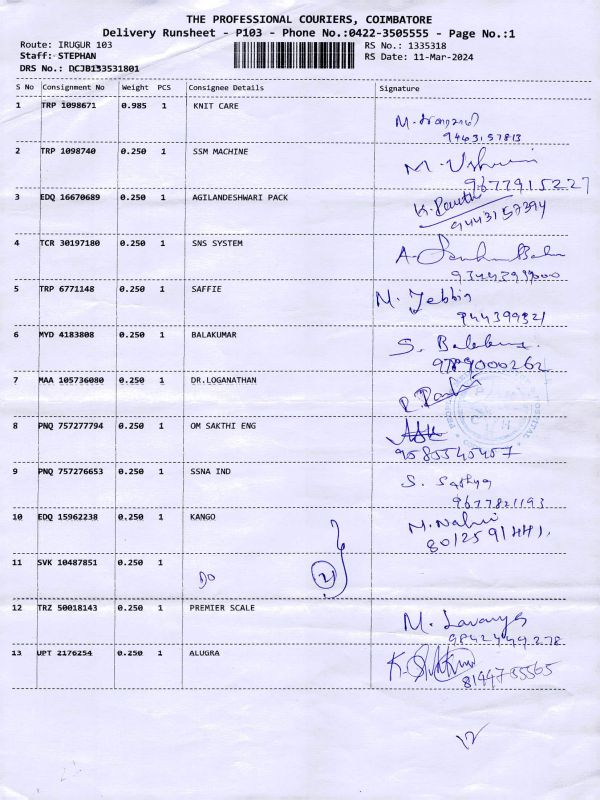 THE PROFESSIONAL COURIERS, COIMBATORE
Delivery Runsheet - P103 - Phone No.:0422-3505555 - Page No.:1
Route: IRUGUR 103
RS No.: 1335318
Staff: STEPHAN
RS Date: 11-Mar-2024
DRS No.: DCJB133531801
S No Consignment No Weight PCS Consignee Details Signature
1 TRP 1098671 0.985 1 KNIT CARE
M.
9443157813
2 TRP 1098740 0.250 1 SSM MACHINE
M.
9677915227
3 EDQ 16670689 0.250 1 AGILANDESHWARI PACK
K.
9443157394
4 TCR 30197180 0.250 1 SNS SYSTEM
A.
5 TRP 6771148 0.250 1 SAFFIE
M. Jebbin
944399321
6 MYD 4183808 0.250 1 BALAKUMAR
S.
9789000262
7 MAA 105736080 0.250 1 DR.LOGANATHAN
R.
8 PNQ 757277794 0.250 1 OM SAKTHI ENG
9585545457
9 PNQ 757276653 0.250 1 SSNA IND
S. Sathya
9677821193
10 EDQ 15962238 0.250 1 KANGO
M.
8012591441
11 SVK 10487851 0.250 1
DO
12 TRZ 50018143 0.250 1 PREMIER SCALE
M. Lavanya
9842449278
13 UPT 2176254 0.250 1 ALUGRA
K.
12